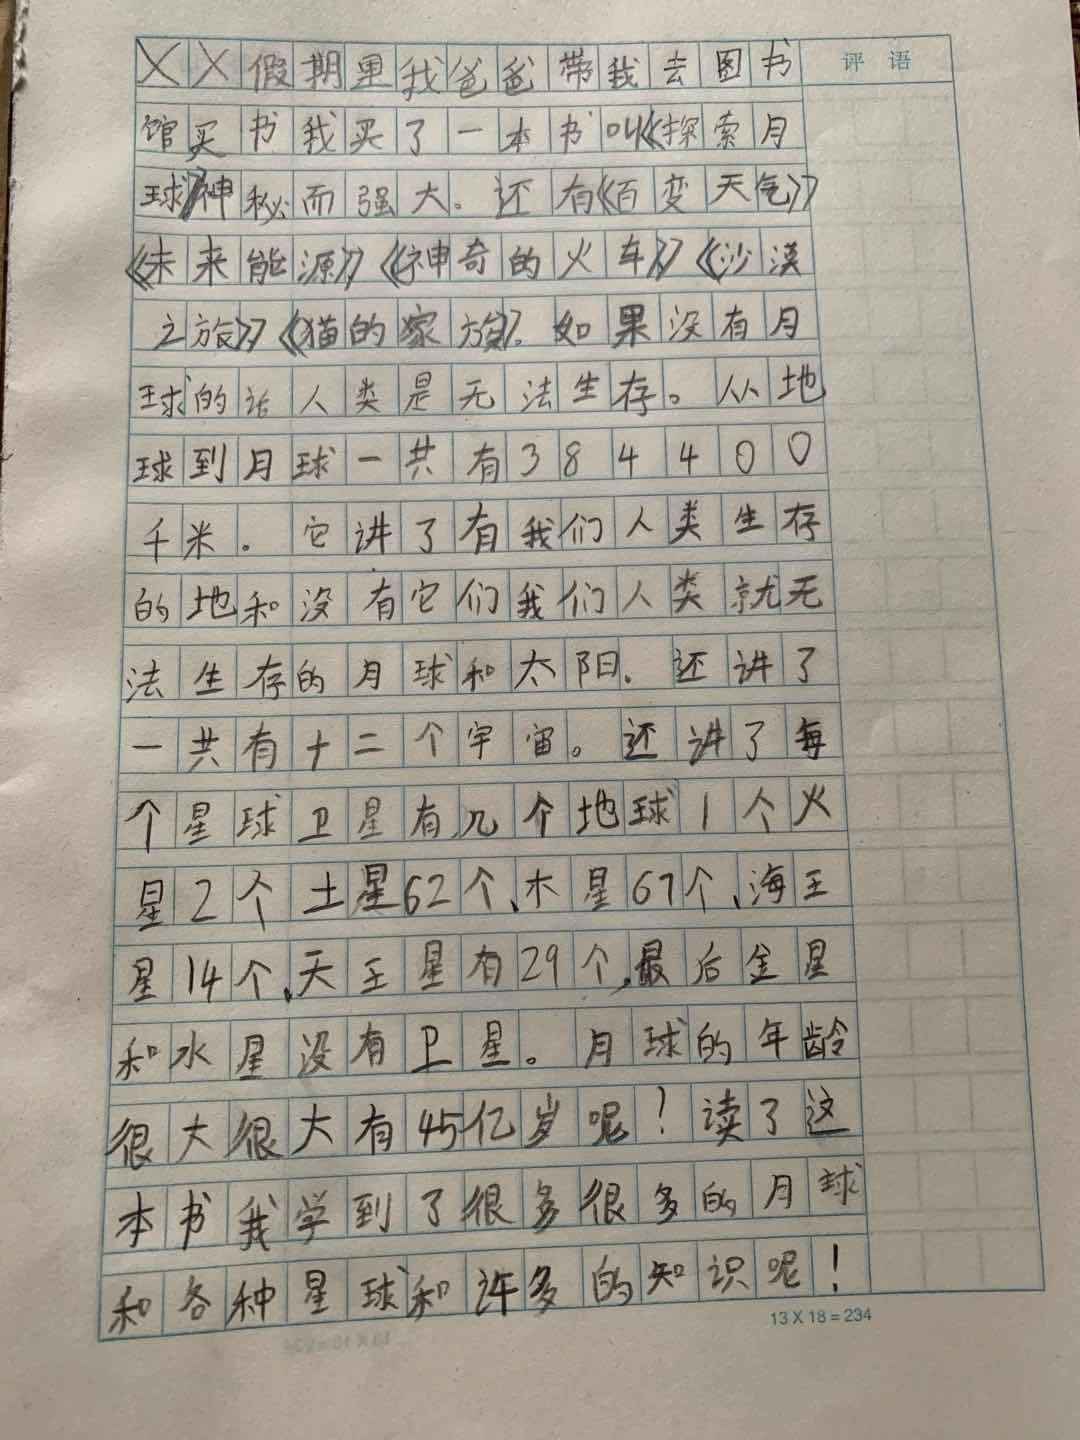 ╳╳假期里我爸爸带我去图书 评语
馆买书我买了一本书叫《探索月
球》神秘而强大。还有《百变天气》
《未来能源》《神奇的火车》《沙漠
之旅》《猫的家族》。如果没有月
球的话人类是无法生存。从地
球到月球一共有384400
千米。它讲了有我们人类生存
的地和没有它们我们人类就无
法生存的月球和太阳。还讲了
一共有十二个宇宙。还讲了每
个星球卫星有几个地球1个火
星2个土星62个、木星67个、海王
星14个、天王星有29个,最后金星
和水星没有卫星。月球的年龄
很大很大有45亿岁呢!读了这
本书我学到了很多很多的月球
和各种星球和许多的知识呢!
13X18=234